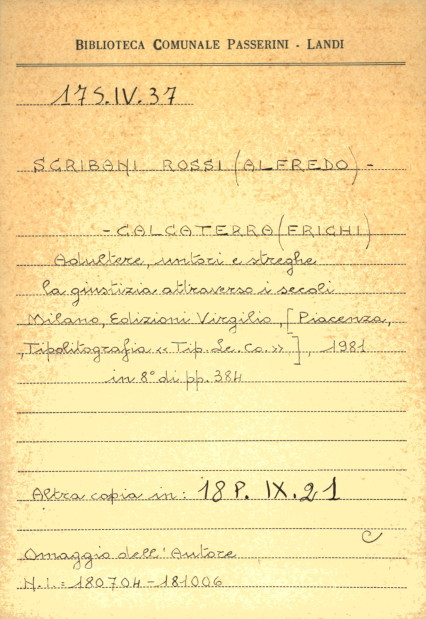 BIBLIOTECA COMUNALE PASSERINI - LANDI
17S.IV.37
SCRIBANI ROSSI (ALFREDO) -
- CALCATERRA (FRIGHI)
Adultere, untori e streghe
la giustizia attraverso i secoli
Milano, Edizioni Virgilio, [Piacenza,
Tipolitografia «Tip. Le. Co.»], 1981
in 8° di pp. 384
Altra copia in: 18 P. IX. 21
C
Omaggio dell'Autore
N.i.= 180704-181006